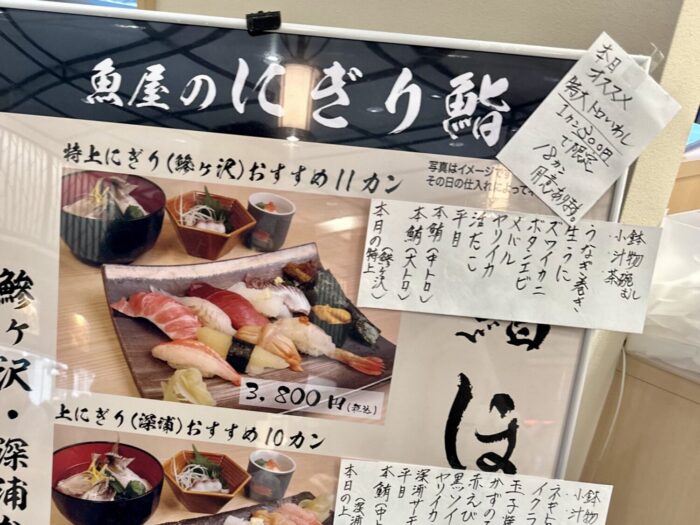 魚屋のにぎり鮨
本日
オススメ
特大トロいわし
1カン300円
で限定
18カン
用意あります。
特上にぎり(鰺ヶ沢)おすすめ11カン
写真はイメージです
その日の仕入れによって
鉢物
小汁茶碗むし
うなぎ巻き
生うに
ズワイカニ
ボタンエビ
メバル
ヤリイカ
活たこ
平目
本鮪(中トロ)
本鮪(大トロ)
本日の特上(鰺ヶ沢)
3,800円(税込)
鰺ヶ沢・深浦
ほ
上にぎり(深浦)おすすめ10カン
鉢物
小汁
ネギト
イクラ
玉子焼
かずの
赤えび
黒ソイ
ヤリイカ
深浦サモ
平目
本鮪(中ト
本日の上(深浦